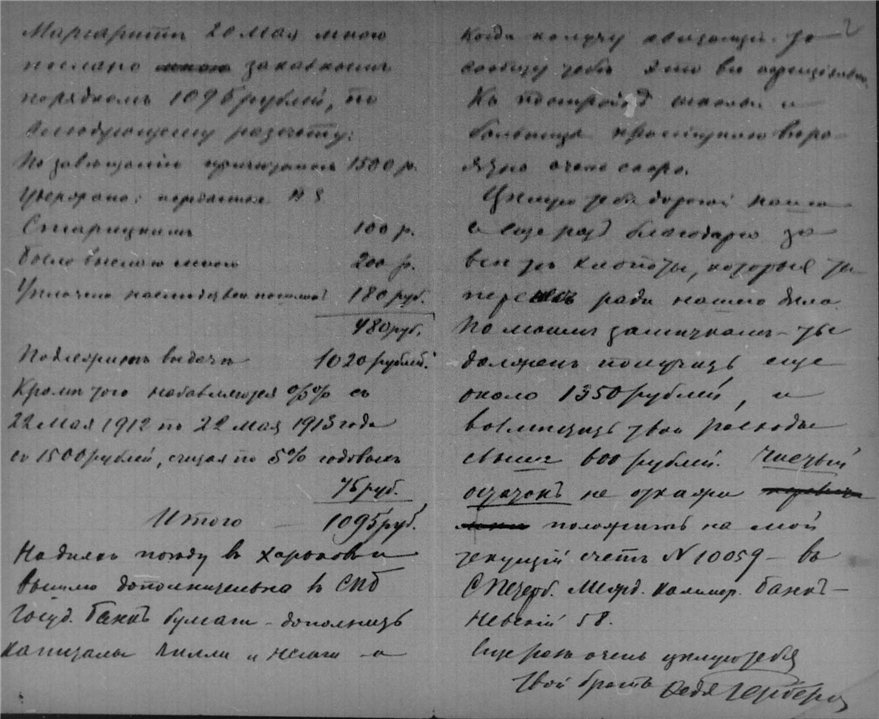 Маргаритѣ 20 Мая мною
послано заказнымъ
порядкомъ 1095 рублей, по
слѣдующему разсчету:
По завѣщанію причиталось 1500 р.
Удержано:
Старицкимъ 100 р.
было выслано мною 200 р.
Уплочено наслѣдствен пошлины 180 руб.
480 руб.
Подлежитъ выдачѣ 1020 рублей.
Кромѣ того набавляются %% съ
22 Мая 1912 по 22 Мая 1913 года
съ 1500 рублей, считая по 5% годовыхъ
75 руб.
Итого — 1095 руб.
На дняхъ поѣду въ Харьковъ и
вышлю дополнительно въ СПБ
Госуд. банкъ бумаги - дополнить
капиталы Лилли и Нелли - и
2
Когда получу
сообщу тебѣ
Къ постройкѣ школы и
больницы приступлю вѣро-
ятно очень скоро.
Цѣлую тебя дорогой
и еще разъ благодарю за
всѣ тѣ хлопоты, которые ты
перенесъ ради нашего дѣла
По моимъ замѣткамъ ты
долженъ получить еще
около 1350 рублей, и
возмѣстить твои расходы
свыше 600 рублей. Чистый
остатокъ не откажи
положить на мой
текущій счетъ N 10059 — въ
С Петерб. Межд. Коммер. банкъ —
Невскій 58.
Еще разъ очень цѣлую тебя
Твой братъ Федя Гербер